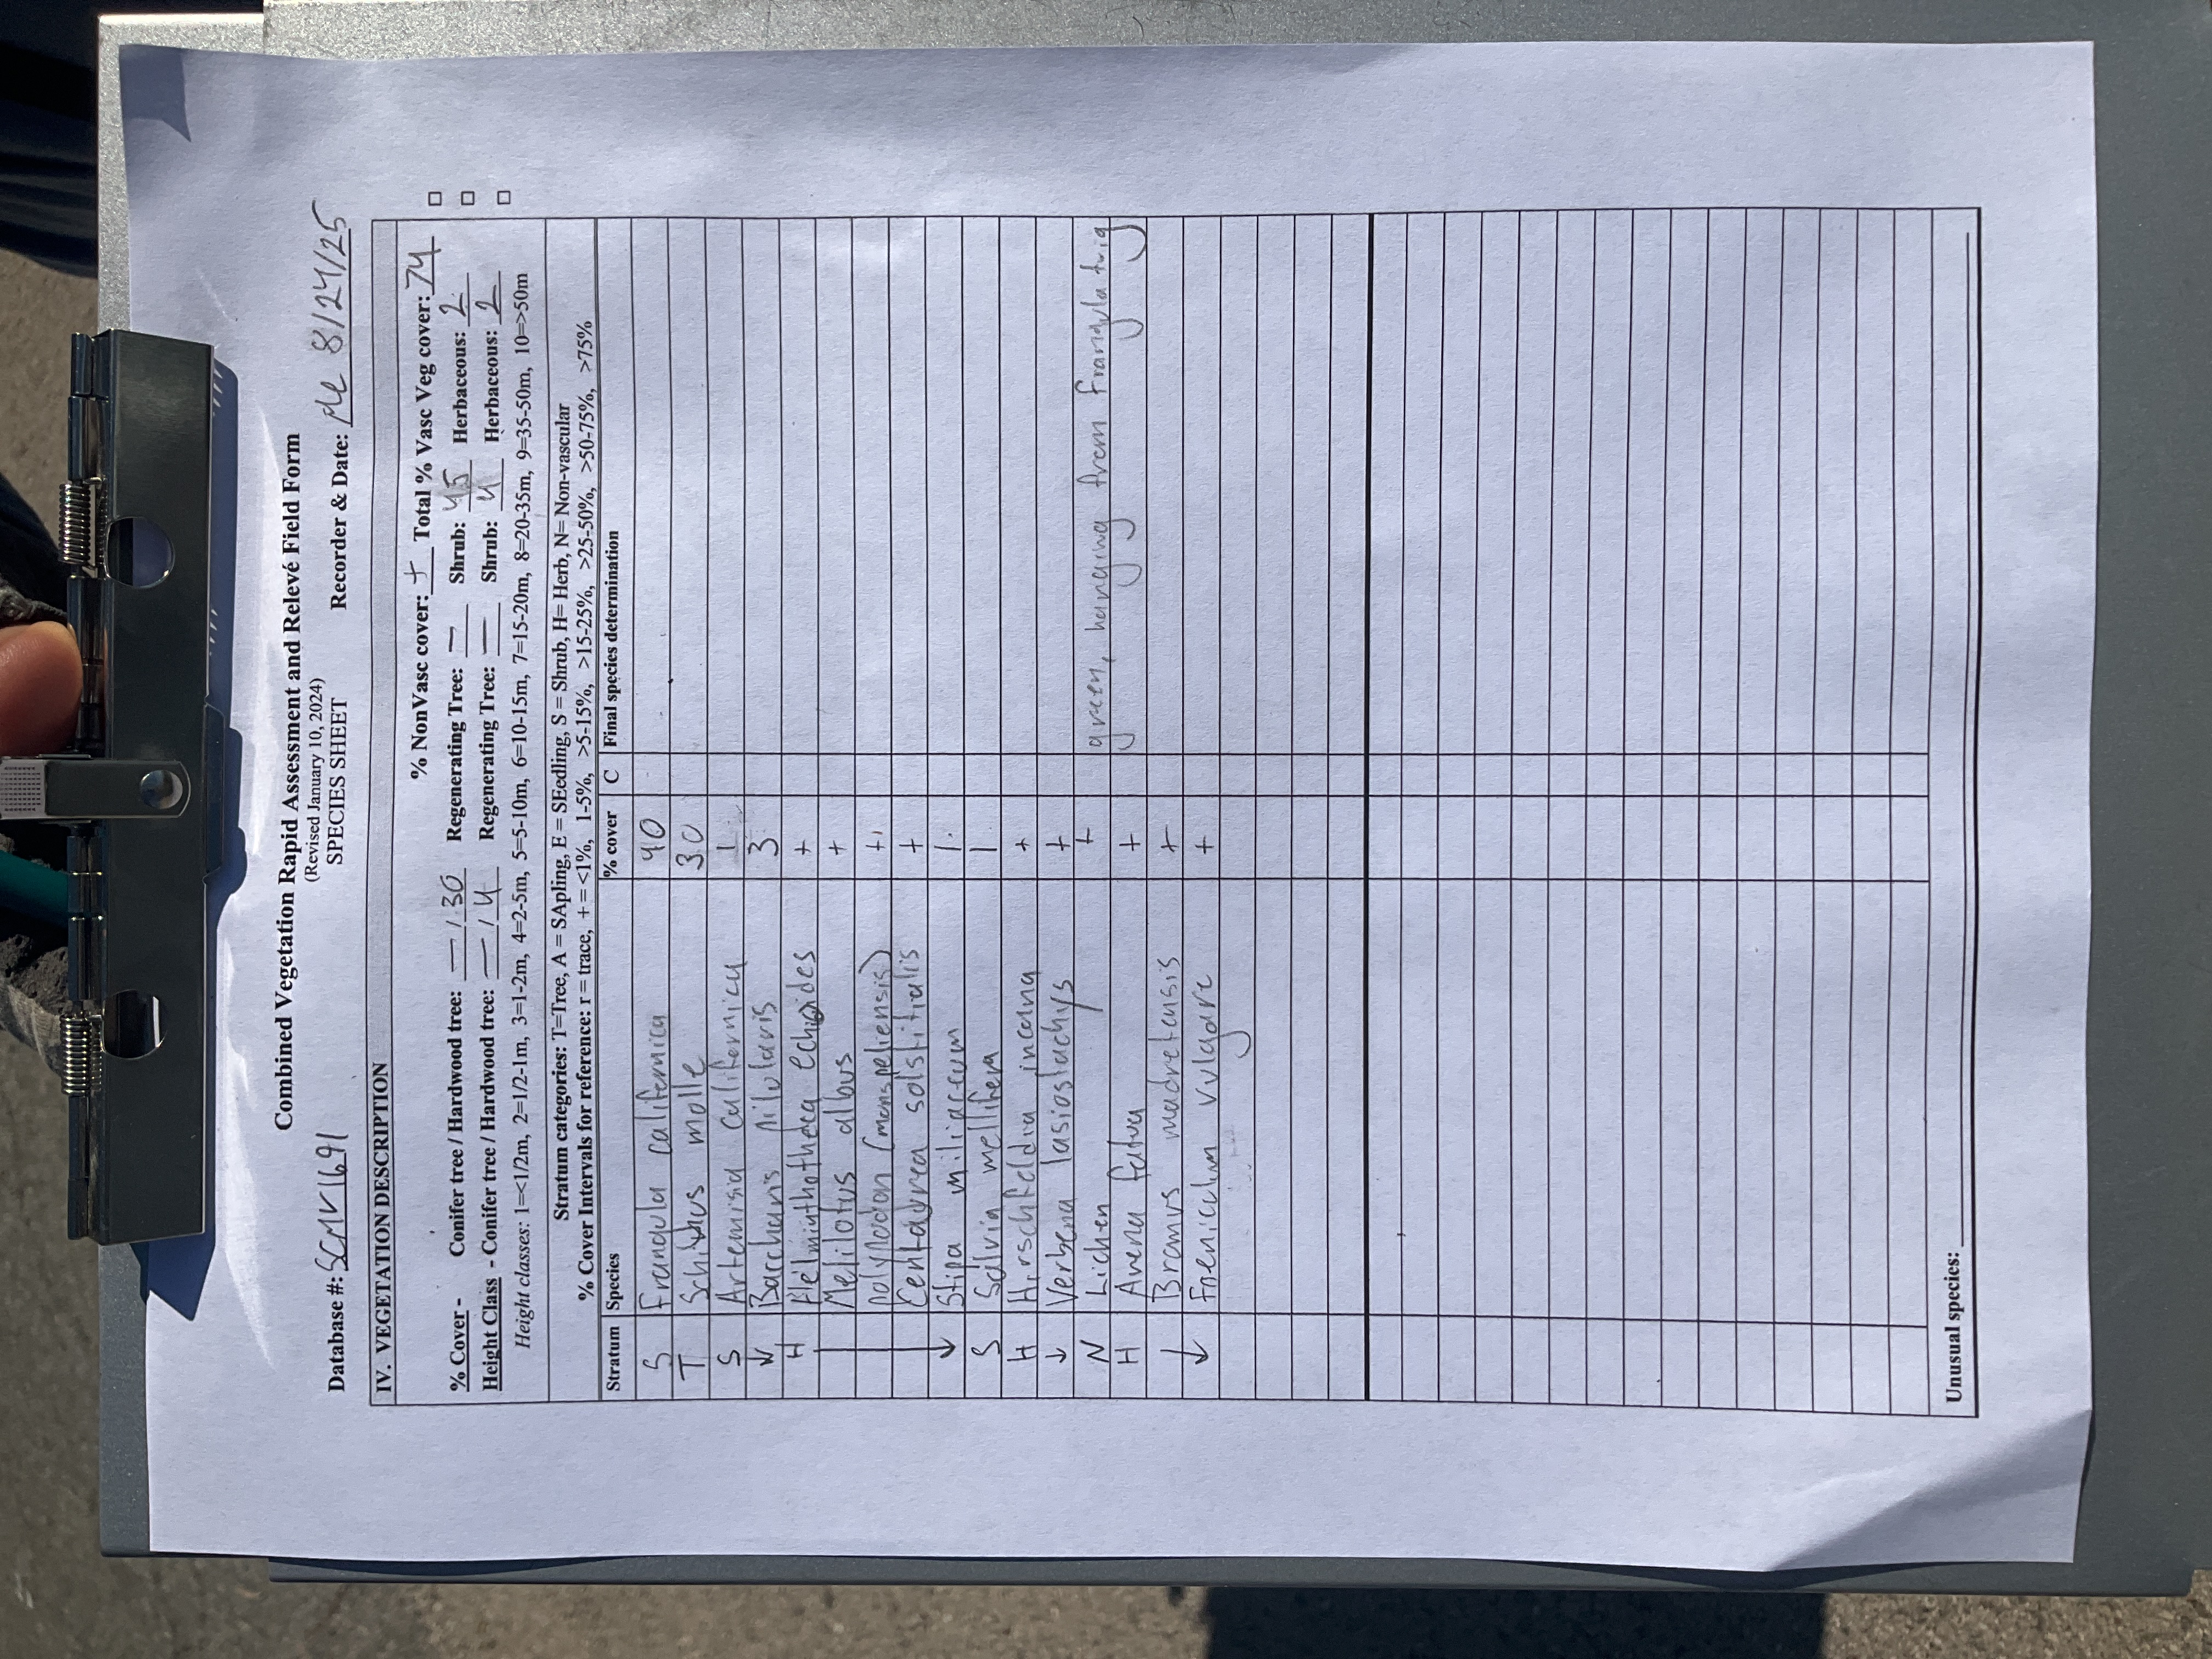 Combined Vegetation Rapid Assessment and Relevé Field Form
(Revised January 10, 2024)
SPECIES SHEET
Database #: SCMV1691 Recorder & Date: 8/24/25
IV. VEGETATION DESCRIPTION
% NonVasc cover: + Total % Vasc Veg cover: 74
% Cover - Conifer tree / Hardwood tree: — / 30 Regenerating Tree: — Shrub: 45 Herbaceous: 2
Height Class - Conifer tree / Hardwood tree: — / 4 Regenerating Tree: — Shrub: 4 Herbaceous: 2
Height classes: 1=<1/2m, 2=1/2-1m, 3=1-2m, 4=2-5m, 5=5-10m, 6=10-15m, 7=15-20m, 8=20-35m, 9=35-50m, 10=>50m
Stratum categories: T=Tree, A = SApling, E = SEedling, S = Shrub, H= Herb, N= Non-vascular
% Cover Intervals for reference: r = trace, + = <1%, 1-5%, >5-15%, >15-25%, >25-50%, >50-75%, >75%
Stratum Species % cover C Final species determination
S Frangula californica 40
T Schinus molle 30
S Artemisia californica 1
↓ Baccharis pilularis 3
H Helminthotheca echioides +
Melilotus albus +
Polypodon (monspeliensis) +
Centaurea solstitialis +
↓ Stipa miliaceum 1
S Salvia mellifera 1
H Hirschfeldia incana +
↓ Verbena lasiostachys +
N Lichen + green, hanging from frangula twig
H Avena fatua +
Bromus madretensis +
↓ Foeniculum vulgare +
Unusual species: